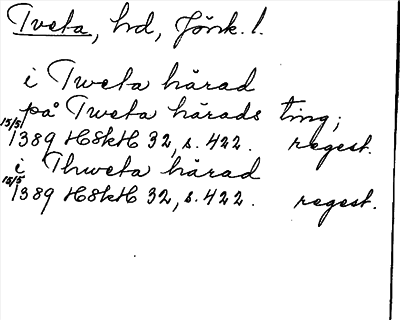 Tveta, hd, Jönk. l.
i Tweta härad
på Tweta härads ting;
15/5 1389 HSkH 32, s. 422. regest.
i Thweta härad
15/5 1389 HSkH 32, s. 422. regest.